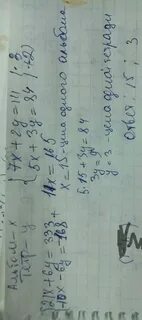 Альбом - x
Тетр - y
7x + 2y = 111 | · 3
5x + 3y = 84 | · -2
21x + 6y = 333 +
-10x - 6y = -168
11x = 165
x = 15 - цена одного альбома
5·15 + 3y = 84
3y = 9
y = 3 - цена одной тетради
Ответ: 15 ; 3